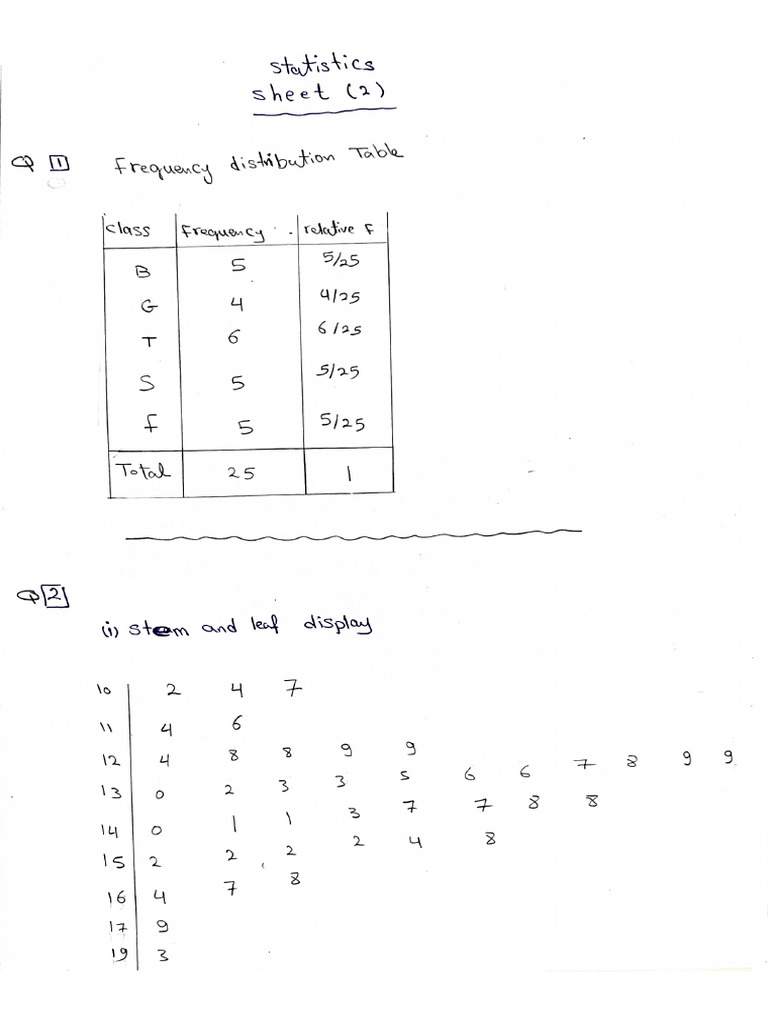 Statistics
sheet (2)
Q 1 Frequency distribution Table
class Frequency . relative F
B 5 5/25
G 4 4/25
T 6 6/25
S 5 5/25
F 5 5/25
Total 25 1
Q 2
(i) stem and leaf display
10 2 4 7
11 4 6
12 4 8 8 9 9
13 0 2 3 3 5 6 6 7 8 9 9
14 0 1 1 3 7 7 8 8
15 2 2 2 2 4 8
16 4 7 8
17 9
19 3